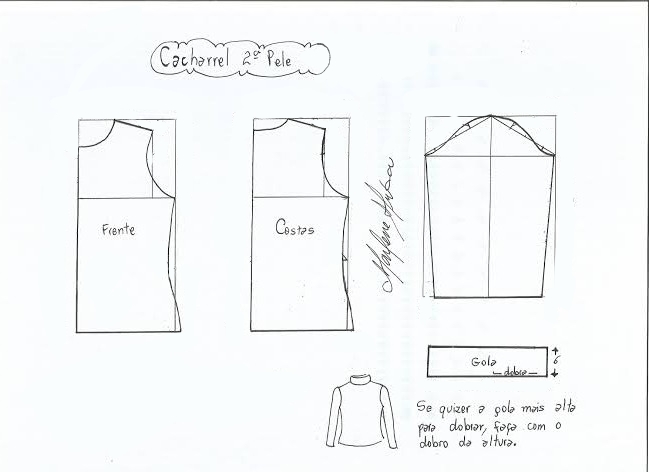 Cacharrel 2ª Pele
Frente
Costas
Marlene Mukai
Gola
dobra
6
Se quizer a gola mais alta
para dobrar, faça com o
dobro da altura.